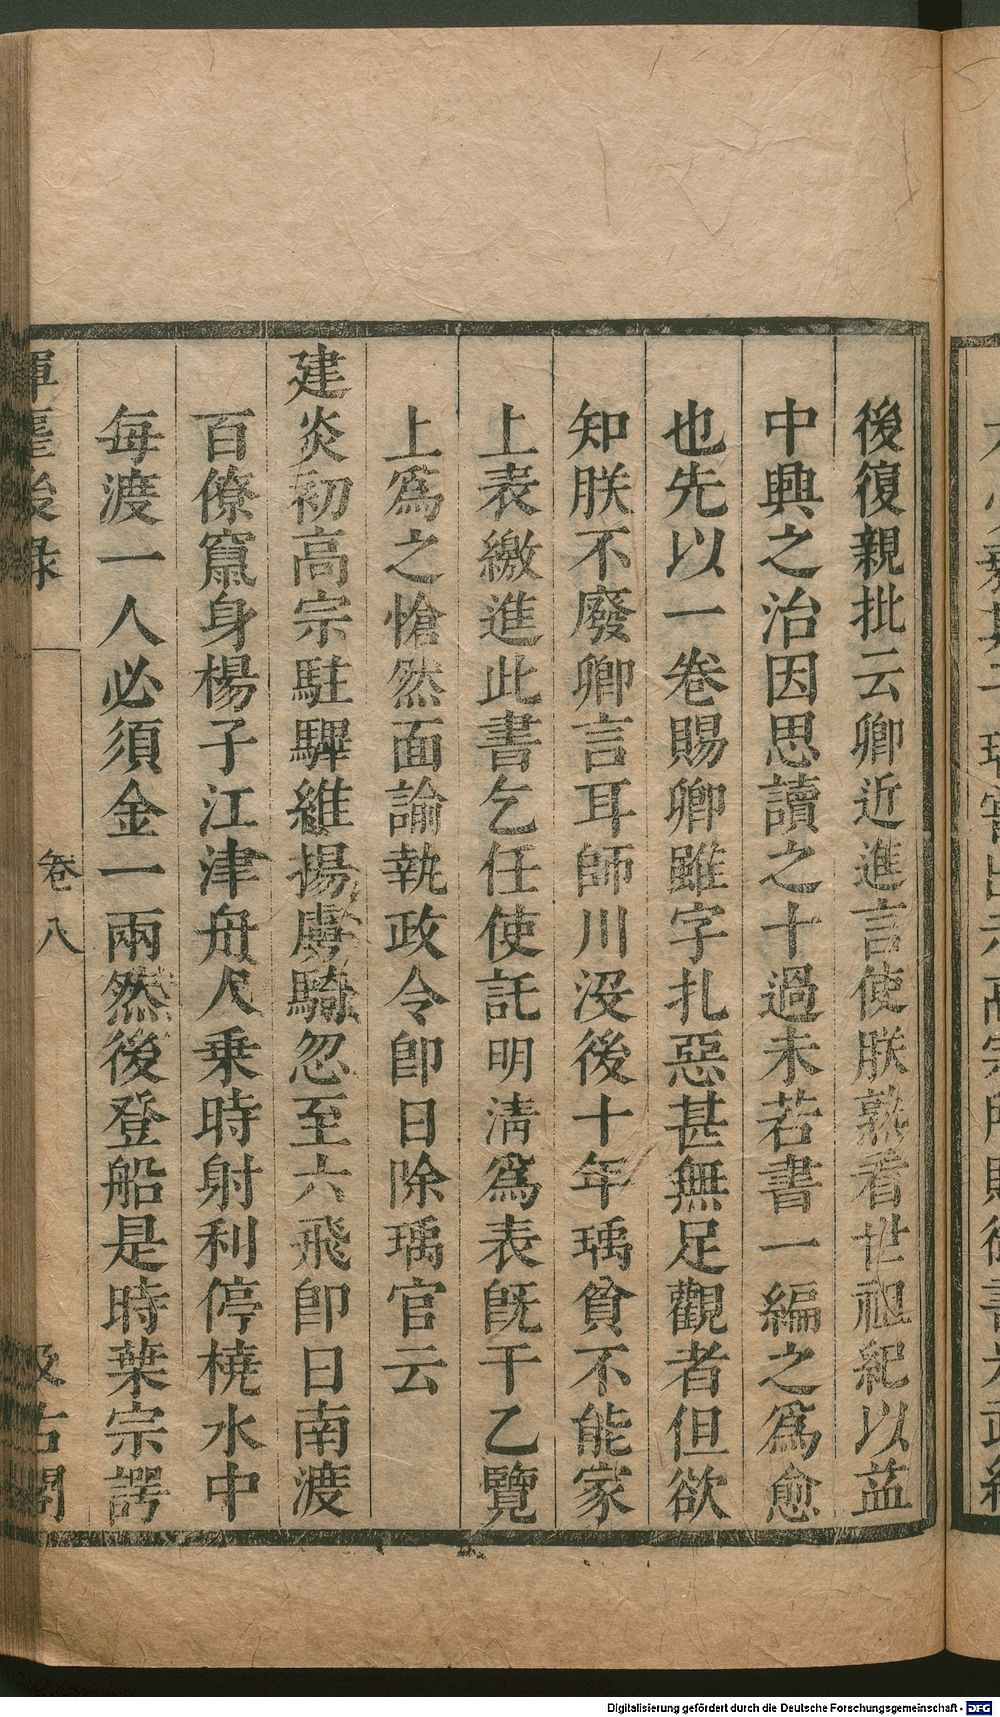 後復親批云卿近進言使朕熟看世祖紀以益
中興之治因思讀之十過未若書一編之爲愈
也先以一卷賜卿雖字扎惡甚無足觀者但欲
知朕不廢卿言耳師川沒後十年瑀貧不能家
上表繳進此書乞任使託明淸爲表旣干乙覽
上爲之愴然面諭執政令卽日除瑀官云
建炎初高宗駐驆維揚虜騎忽至六飛卽日南渡
百僚竄身楊子江津舟人乗時射利停橈水中
每渡一人必須金一兩然後登船是時葉宗諤
揮麈後錄 卷八 汲古閣
Digitalisierung gefördert durch die Deutsche Forschungsgemeinschaft - DFG